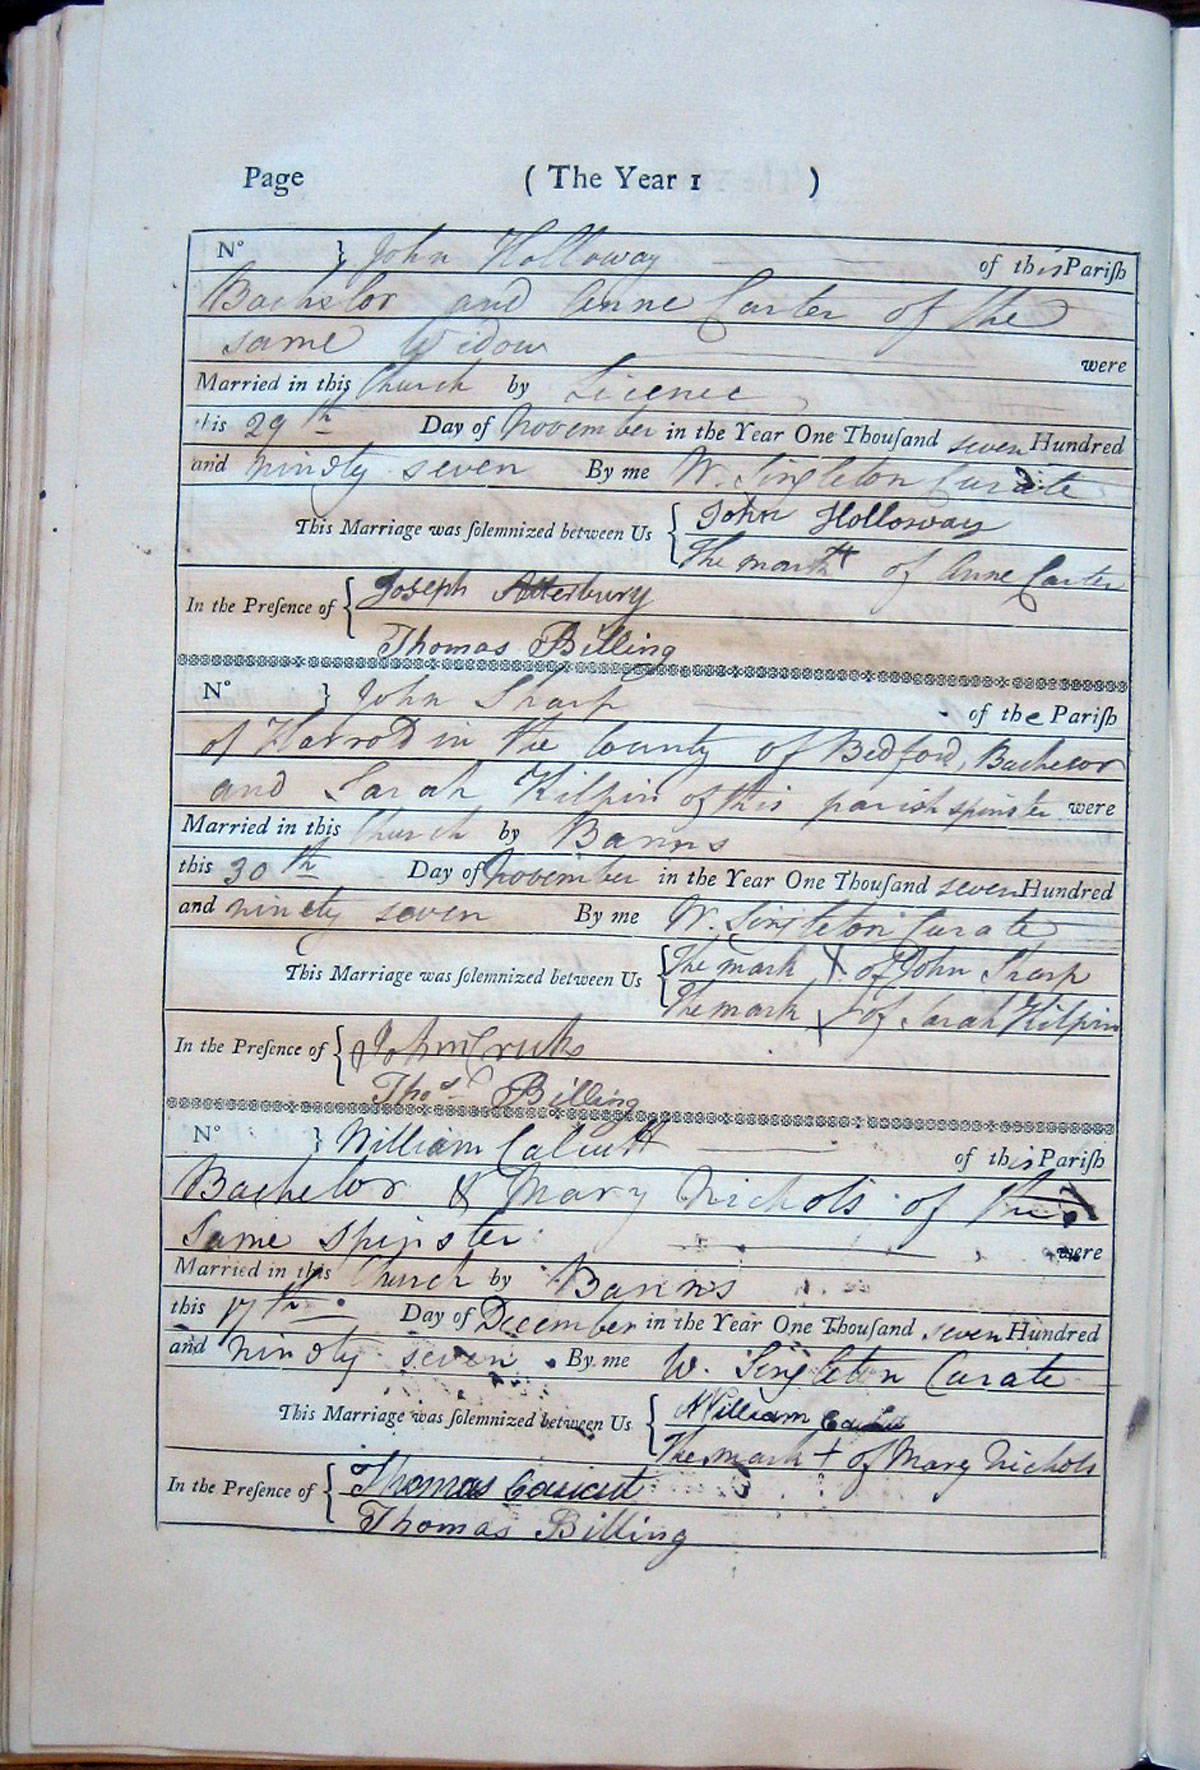 Page ( The Year 1 )
No } John Holloway of this Pariſh
Bachelor and Anne Carter of the
same Widow were
Married in this Church by Licence
this 29th Day of November in the Year One Thouſand seven Hundred
and nindty seven By me W. Singleton Curate
This Marriage was ſolemnized between Us { John Holloway
The mark of Anne Carter
In the Preſence of { Joseph Atterbury
Thomas Billing
No } John Sharp of the Pariſh
of Harrold in the County of Bedford, Bachelor
and Sarah Kilpin of this parish spinster were
Married in this Church by Banns
this 30th Day of November in the Year One Thouſand seven Hundred
and ninety seven By me W. Singleton Curate
This Marriage was ſolemnized between Us { The mark X of John Sharp
The mark X of Sarah Kilpin
In the Preſence of { John
Thos Billing
No } William Calcutt of this Pariſh
Bachelor & Mary Nichols of the
Same spinster were
Married in this Church by Banns
this 17th Day of December in the Year One Thouſand seven Hundred
and nindty seven By me W. Singleton Curate
This Marriage was ſolemnized between Us { William
The mark + of Mary Nichols
In the Preſence of { Thomas
Thomas Billing